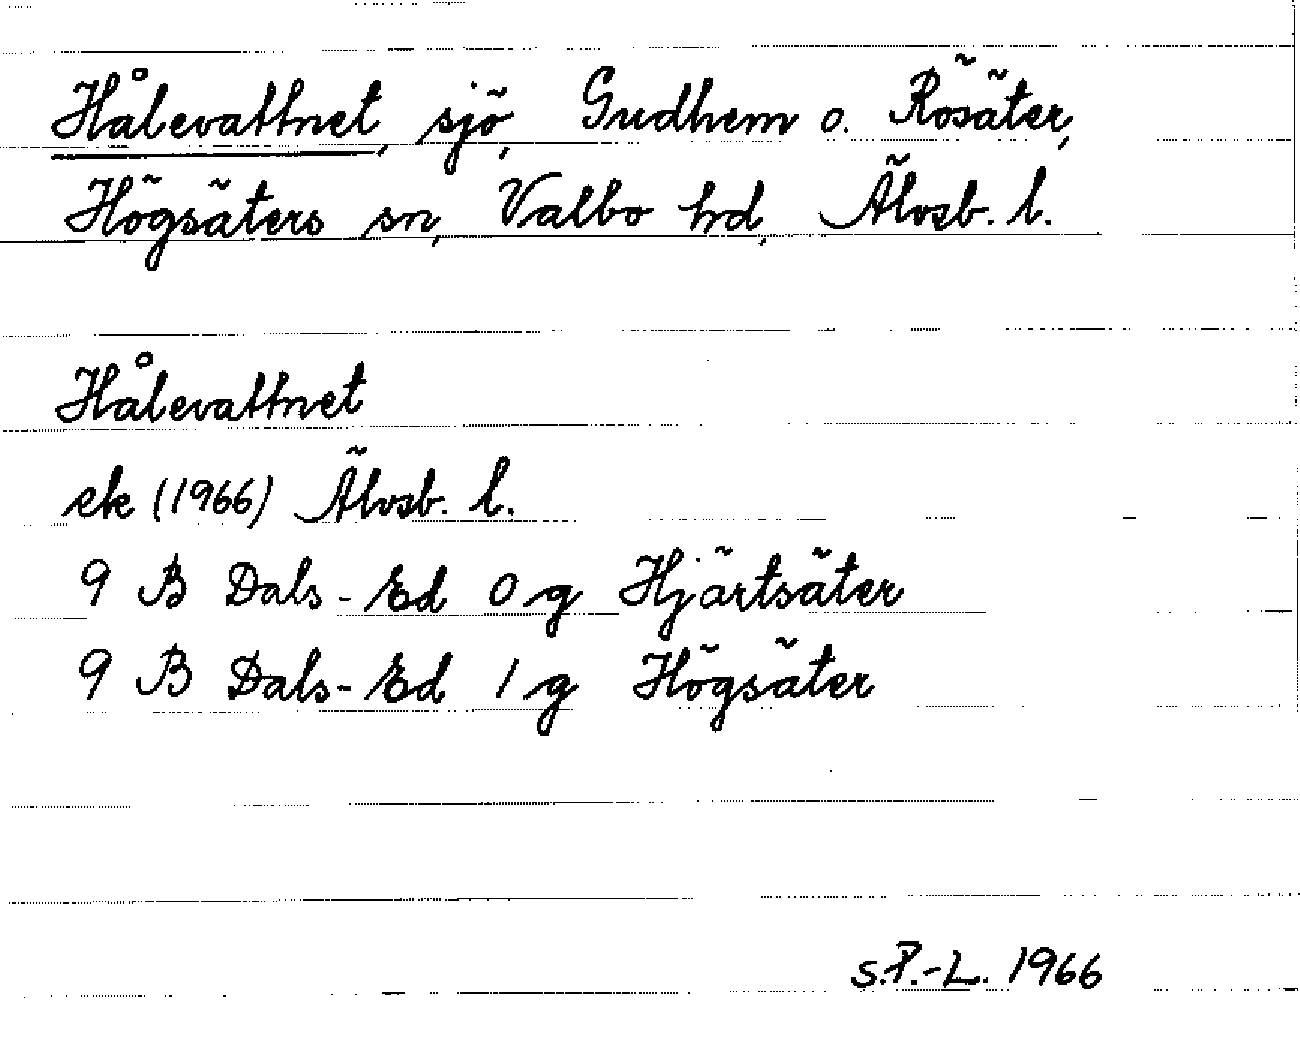 Hålevattnet, sjö, Gudhem o. Rösäter,
Högsäters sn, Valbo hd, Älvsb. l.
Hålevattnet
ek (1966) Älvsb. l.
9 B Dals-Ed 0 g Hjärtsäter
9 B Dals-Ed 1 g Högsäter
S.P.-L. 1966